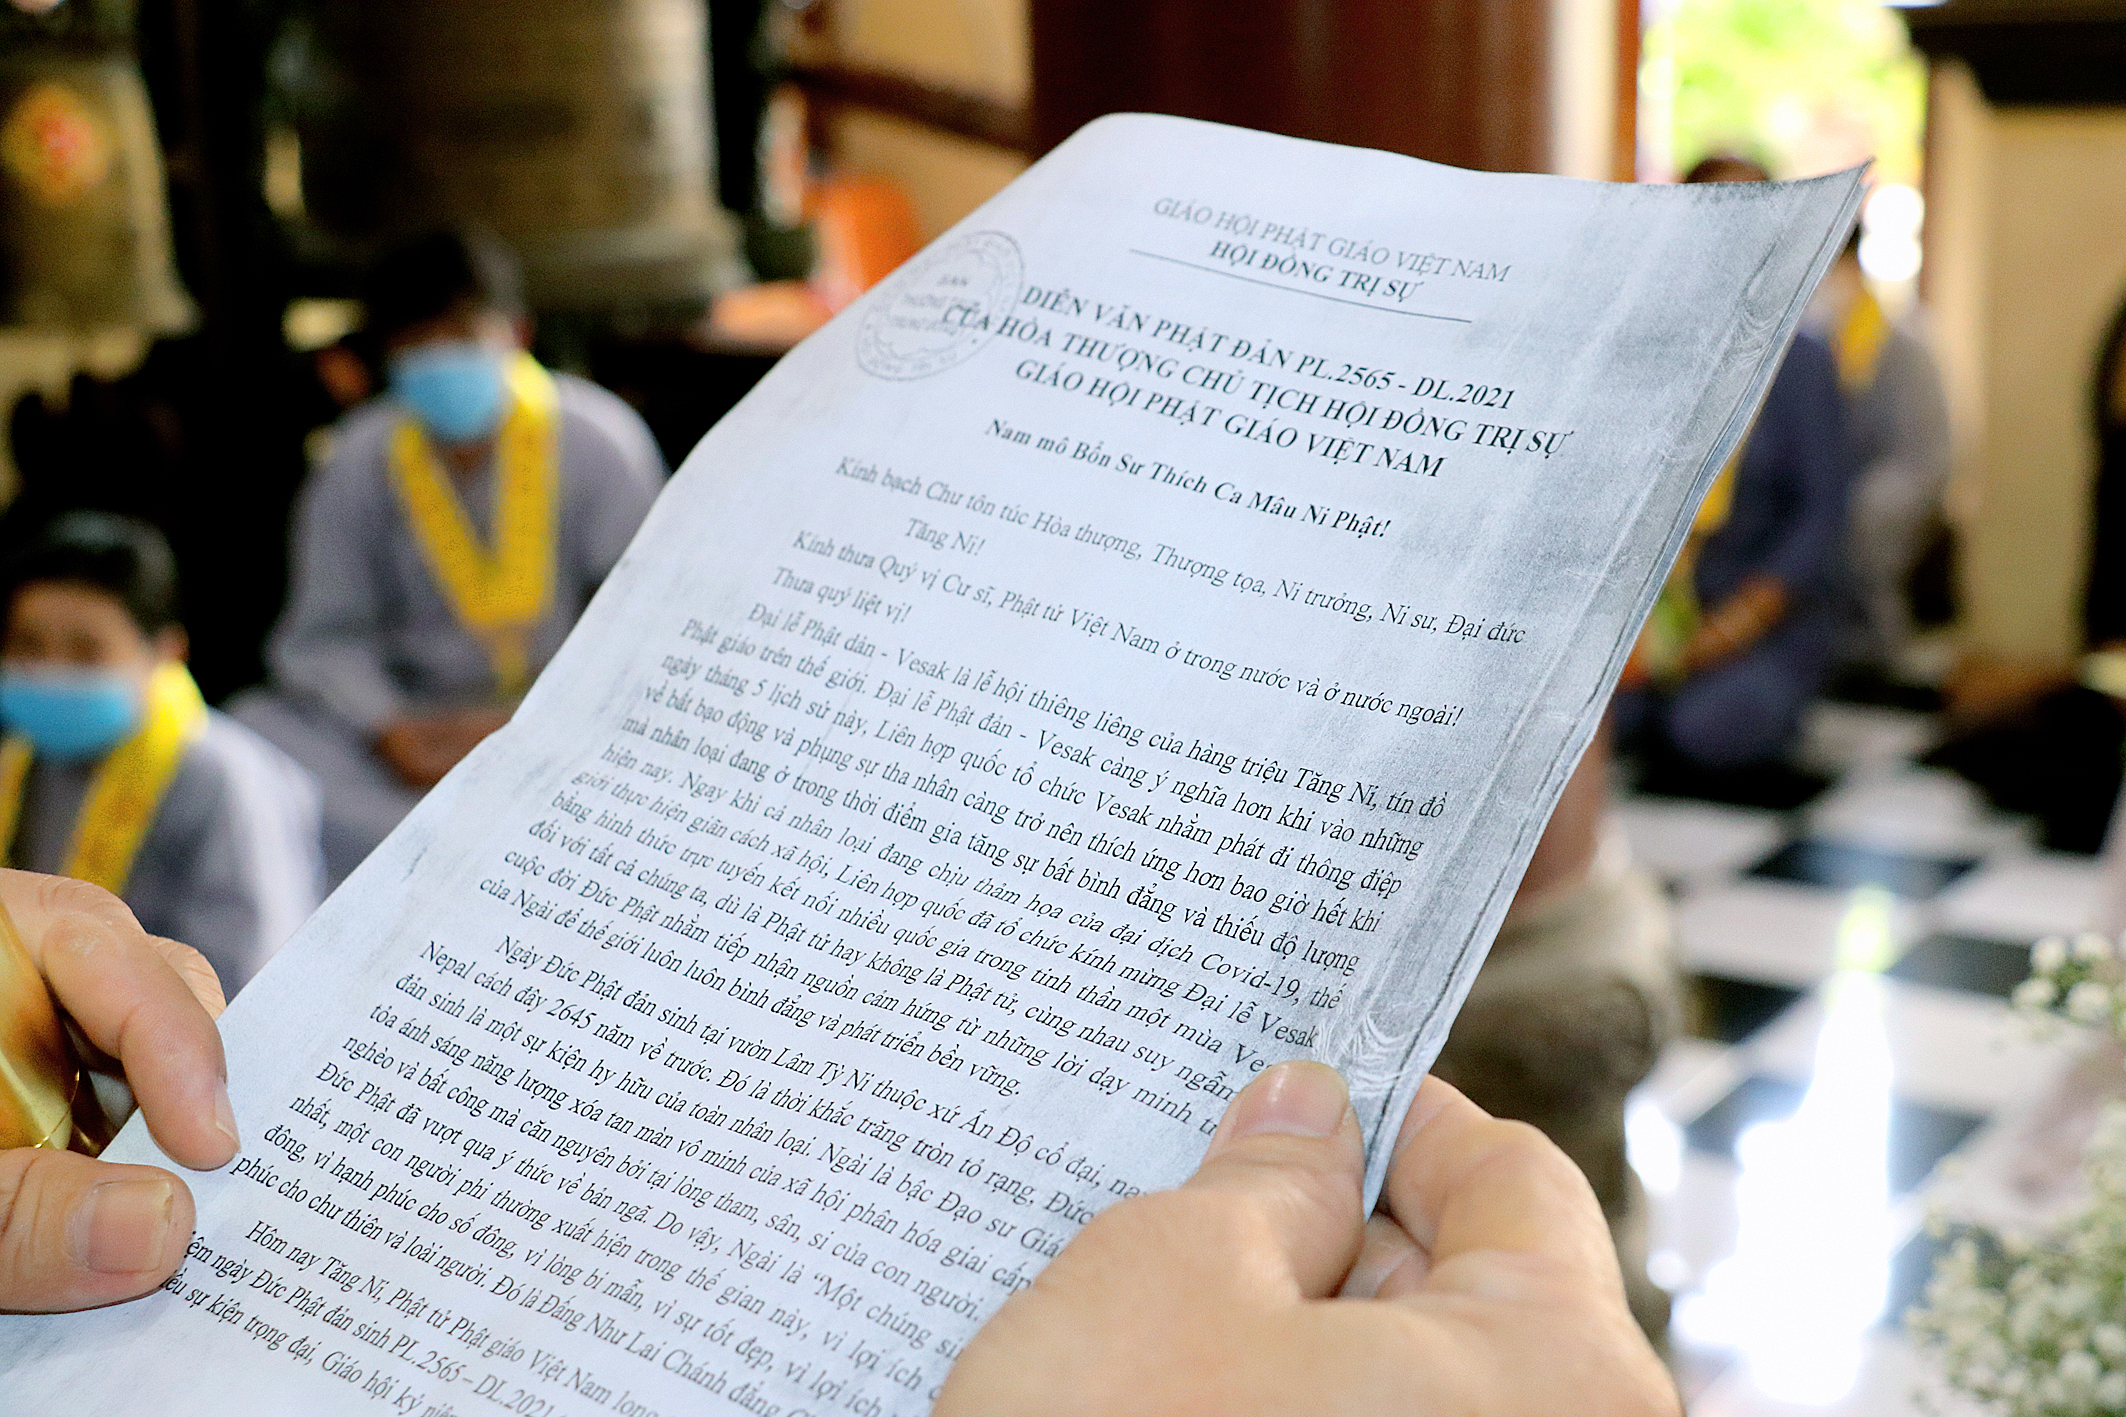 GIÁO HỘI PHẬT GIÁO VIỆT NAM
HỘI ĐỒNG TRỊ SỰ
BAN
DIỄN VĂN PHẬT ĐẢN PL.2565 - DL.2021
CỦA HÒA THƯỢNG CHỦ TỊCH HỘI ĐỒNG TRỊ SỰ
GIÁO HỘI PHẬT GIÁO VIỆT NAM
Nam mô Bổn Sư Thích Ca Mâu Ni Phật!
Kính bạch Chư tôn túc Hòa thượng, Thượng tọa, Ni trưởng, Ni sư, Đại đức
Tăng Ni!
Kính thưa Quý vị Cư sĩ, Phật tử Việt Nam ở trong nước và ở nước ngoài!
Thưa quý liệt vị!
Đại lễ Phật đản - Vesak là lễ hội thiêng liêng của hàng triệu Tăng Ni, tín đồ
Phật giáo trên thế giới. Đại lễ Phật đản - Vesak càng ý nghĩa hơn khi vào những
ngày tháng 5 lịch sử này, Liên hợp quốc tổ chức Vesak nhằm phát đi thông điệp
về bất bạo động và phụng sự tha nhân càng trở nên thích ứng hơn bao giờ hết khi
mà nhân loại đang ở trong thời điểm gia tăng sự bất bình đẳng và thiếu độ lượng
hiện nay. Ngay khi cả nhân loại đang chịu thảm họa của đại dịch Covid-19, thế
giới thực hiện giãn cách xã hội, Liên hợp quốc đã tổ chức kính mừng Đại lễ Vesak
bằng hình thức trực tuyến kết nối nhiều quốc gia trong tinh thần một mùa
đối với tất cả chúng ta, dù là Phật tử hay không là Phật tử, cùng nhau suy ngẫm
cuộc đời Đức Phật nhằm tiếp nhận nguồn cảm hứng từ những lời dạy minh
của Ngài để thế giới luôn luôn bình đẳng và phát triển bền vững.
Ngày Đức Phật đản sinh tại vườn Lâm Tỳ Ni thuộc xứ Ấn Độ cổ đại,
Nepal cách đây 2645 năm về trước. Đó là thời khắc trăng tròn tỏ rạng, Đức
đản sinh là một sự kiện hy hữu của toàn nhân loại. Ngài là bậc Đạo sư
tỏa ánh sáng năng lượng xóa tan màn vô minh của xã hội phân hóa giai cấp
nghèo và bất công mà căn nguyên bởi tại lòng tham, sân, si của con người.
Đức Phật đã vượt qua ý thức về bản ngã. Do vậy, Ngài là "Một chúng
nhất, một con người phi thường xuất hiện trong thế gian này, vì lợi ích
đông, vì hạnh phúc cho số đông, vì lòng bi mẫn, vì sự tốt đẹp, vì lợi ích
phúc cho chư thiên và loài người. Đó là Đấng Như Lai Chánh đẳng
Hôm nay Tăng Ni, Phật tử Phật giáo Việt Nam
ngày Đức Phật đản sinh PL.2565 – DL.2021
sự kiện trọng đại, Giáo hội kỷ